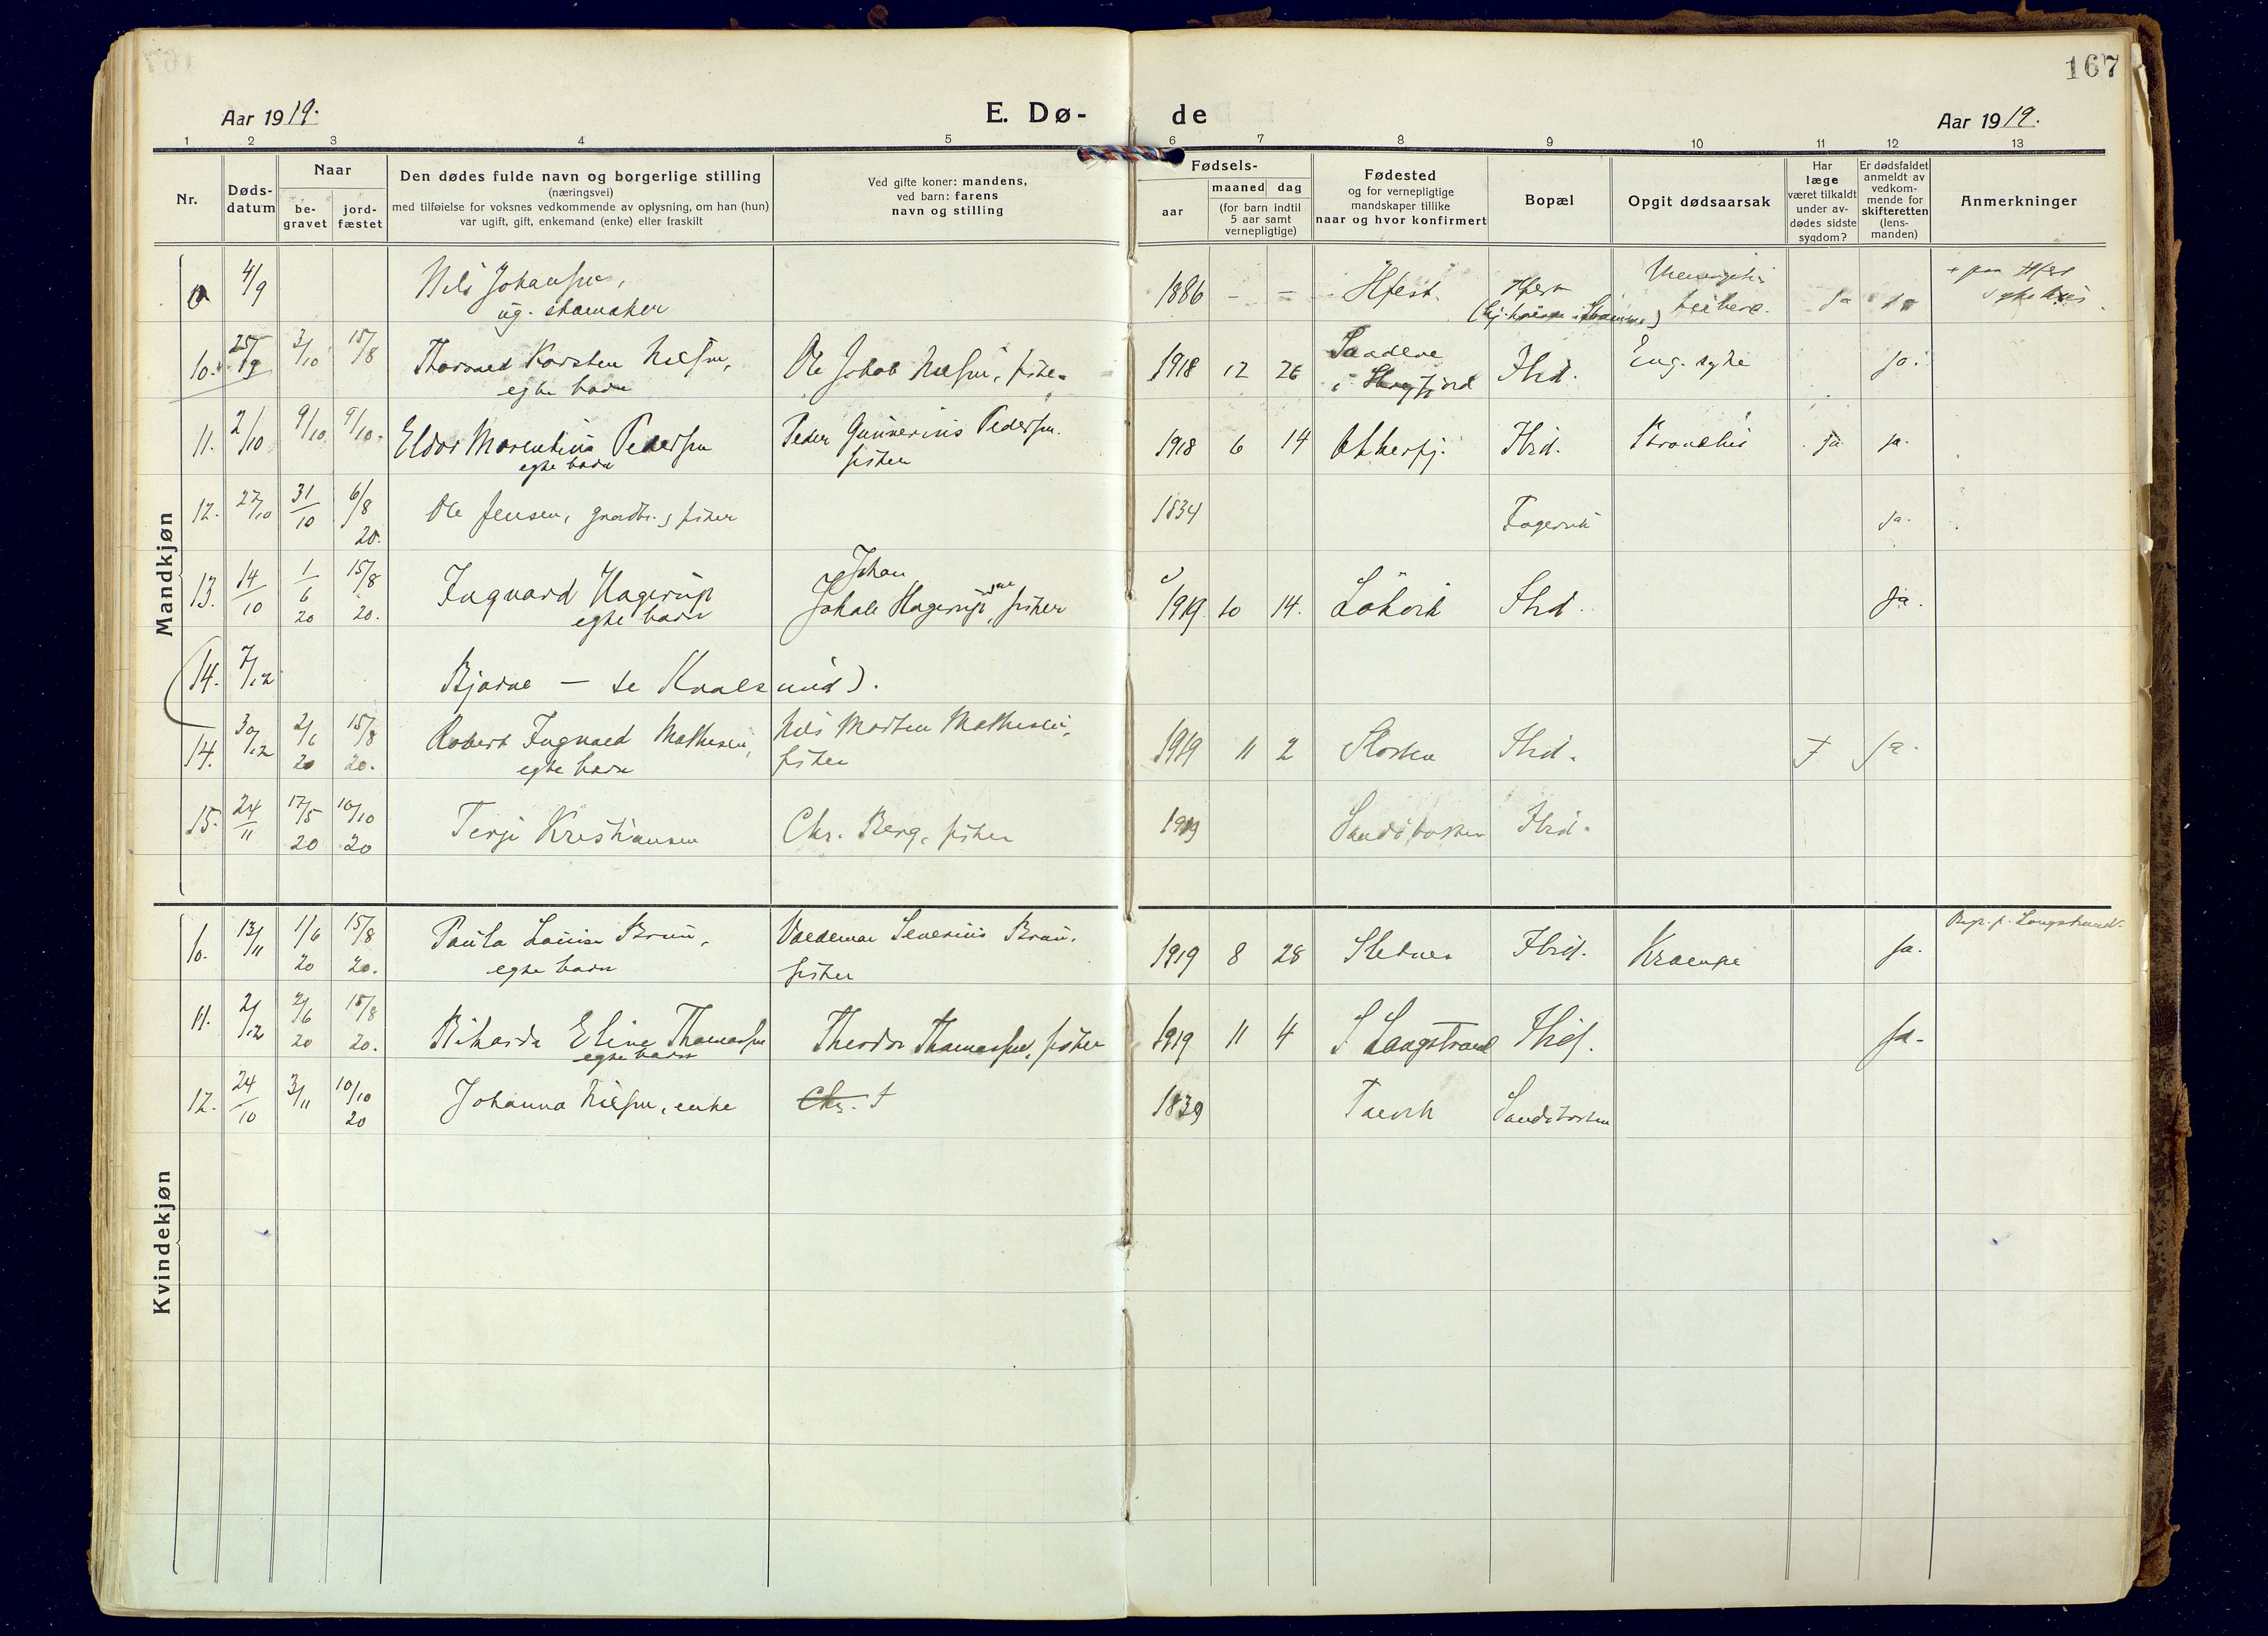 167
Aar 1919.
E. Dø-
de
Aar 1919.
1 2 3 4 5 6 7 8 9 10 11 12 13
Nr.
Døds-
datum
Naar
be-
gravet
jord-
fæstet
Den dødes fulde navn og borgerlige stilling
(næringsvei)
med tilføielse for voksnes vedkommende av oplysning, om han (hun)
var ugift, gift, enkemand (enke) eller fraskilt
Ved gifte koner: mandens,
ved barn: farens
navn og stilling
Fødsels-
aar
maaned dag
(for barn indtil
5 aar samt
vernepligtige)
Fødested
og for vernepligtige
mandskaper tillike
naar og hvor konfirmert
Bopæl
Opgit dødsaarsak
Har
læge
været tilkaldt
under av-
dødes sidste
sygdom?
Er dødsfaldet
anmeldt av
vedkom-
mende for
skifteretten
(lens-
manden)
Anmerkninger
Mandkjøn
4/9 Nils Johansen, 1886 - - Hfest. Hfest ja ja + paa Hfest
ug. skomaker sykehus
10. 25/9 3/10 15/8 Thorvald Karsten Nilsen, Ole Jakob Nilsen, fisker 1918 12 26 Ibid. Eng. syke ja.
egte barn
11. 2/10 9/10 9/10. Eldor Marentius Pedersen Peder Gunnerius Pedersen. 1918 6 14 Akkarfj. Ibid. Bronchit ja ja.
egte barn fisker
12. 27/10 31/10 6/8 Ole Jensen, gaardbr. & fisker 1834 Fagervik ja.
20.
13. 14/10 1/6 15/8 Ingvard Hagerup Johan
20 20. egte barn Hagerupsen, fisker 1919 10 14. Lökvik Ibid. ja.
14. 7/12 Bjarne — se Kvalsund).
14. 30/12 2/6 15/8 Robert Ingvald Mathesen, Nils Morten Mathesen, 1919 11 2 Ibid. ja.
20 20. egte barn fisker
15. 24/11 17/5 10/10 Terje Kristiansen Chr. Berg, fisker 1919 Sandöbotten Ibid.
20 20
Kvindekjøn
10. 13/11 1/6 15/8 Paula Louise Bruun, Valdemar Severius Bruun, 1919 8 28 Sletnes Ibid. Krampe ja. Begr. p. Langstrand.
20 20. egte barn fisker
11. 2/12 2/6 15/8 Rikarda Eline Thomassen Theodor Thomassen, fisker 1919 11 4 S Langstrand Ibid. ja.
20 20. egte barn
12. 24/10 3/11 10/10 Johanna Nilsen, enke Chr. † 1839 Talvik Sandöbotten
20